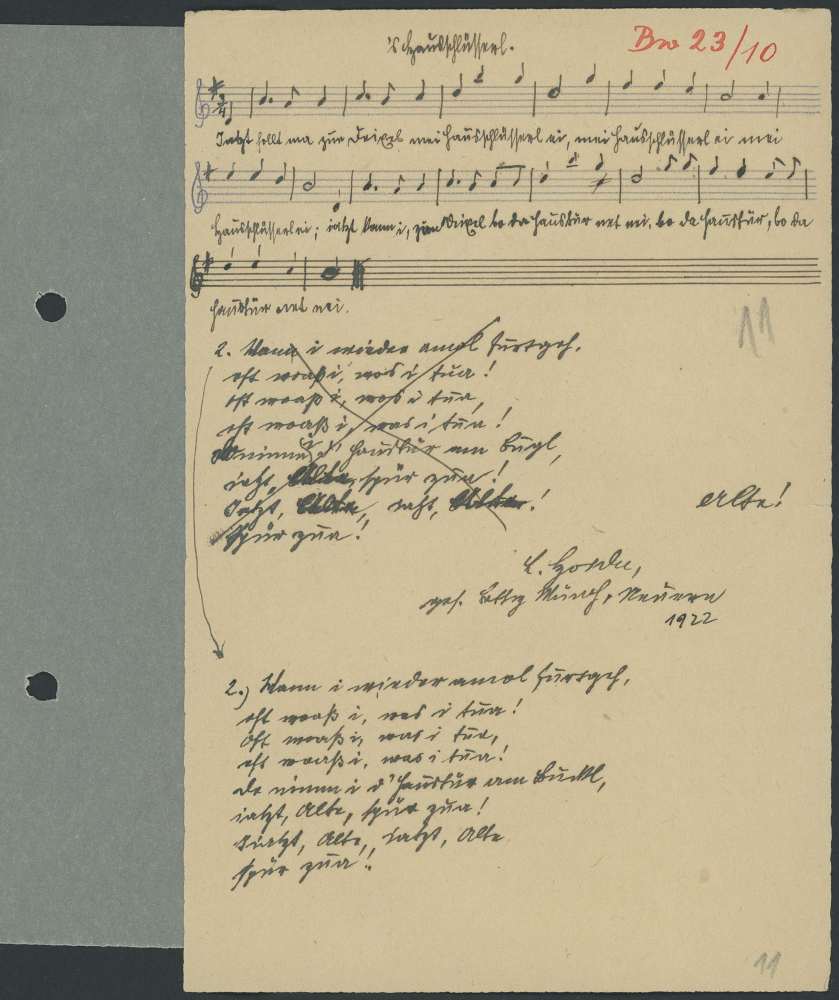 's Hausschlüsserl.
Bw 23/10
3/4
Jatzt hollt ma zur Deixel mei Hausschlüsserl ei, mei Hausschlüsserl ei mei
Hausschlüsserl ei; iatzt kann i, zum Deixel bo da Haustür net nei, bo da Haustür, bo da
Haustür net nei.
11
2. Wann i wieder amol furtgeh,
oft woaß i, wos i tua!
oft woaß i, wos i tua,
oft woaß i, was i tua!
nimm i d' Haustür am Bugl,
iatzt, Alte, spür zua!
Jatzt, Alte, iatzt, Alte!
Alte!
Spür zua!
ges. Betty Münch, Neuern
1922
2.) Wann i wieder amol furtgeh,
oft woaß i, wos i tua!
Oft woaß i, was i tua,
oft woaß i, was i tua!
Do nimm i d' Haustür am Buckl,
iatzt, Alte, spür zua!
Jatzt, Alte, iatzt, Alte
spür zua!
11